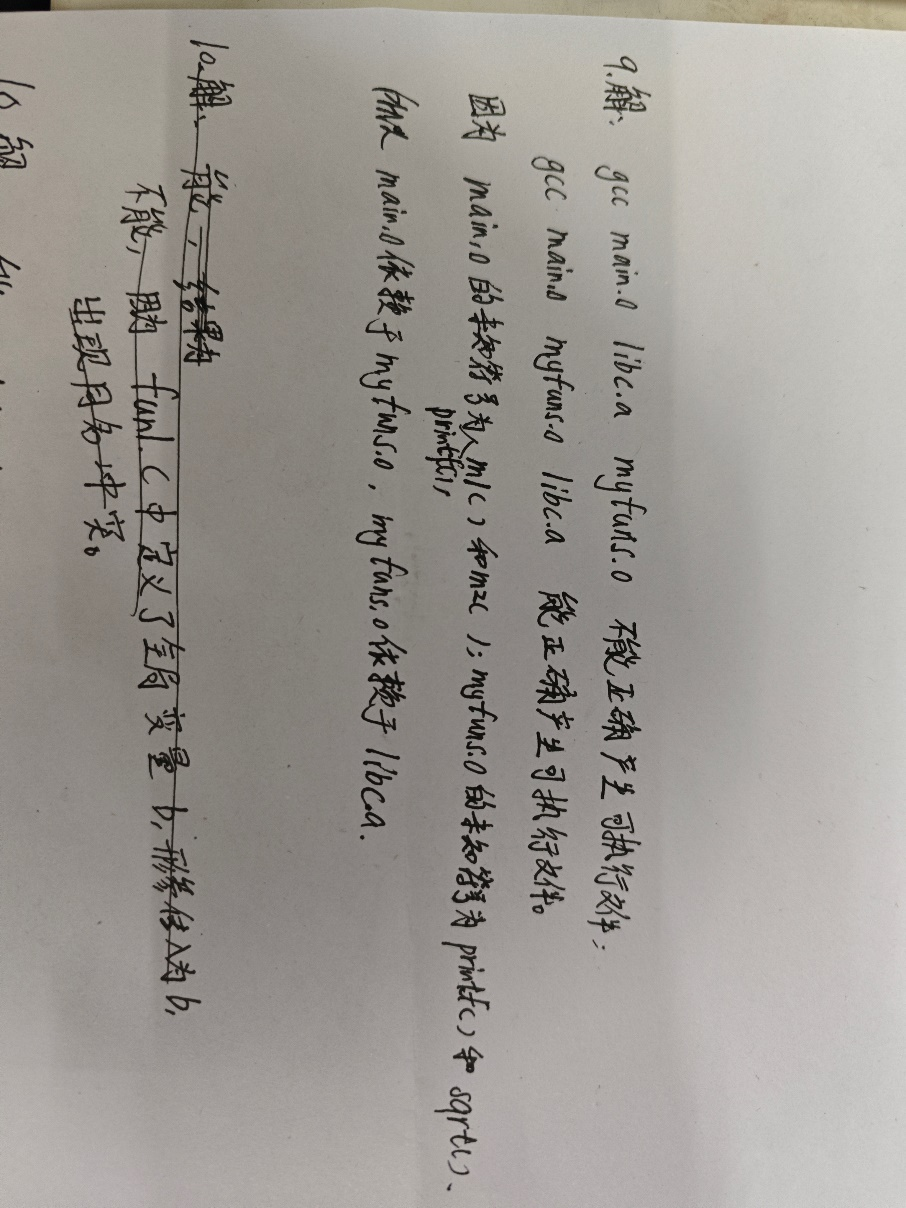 9.解: gcc main.o libc.a myfuns.o 不能正确产生可执行文件;
gcc main.o myfuns.o libc.a 能正确产生可执行文件。
因为 main.o 的未知符号为 printf(), m1( ) 和 m2( ); myfuns.o 的未知符号为 printf( ) 和 sqrt( )、
所以 main.o 依赖于 myfuns.o, myfuns.o 依赖于 libc.a.
10.解: 能, 结果为
不能, 因为 fun1.c 中定义了全局变量 b, 形参传入为 b,
出现同名冲突。
10 解